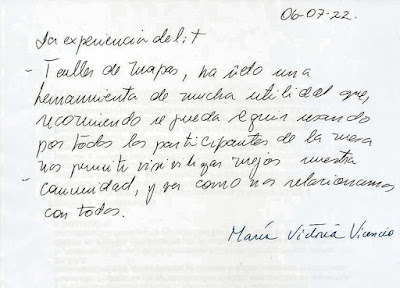 06-07-22.
La experiencia del it
- Taller de mapas, ha sido una
herramienta de mucha utilidad que,
recomiendo se pueda seguir usando
por todos los participantes de la mesa
nos permite visivilizar mejor nuestra
- comunidad, y ver como nos relacionamos
con todos.
María Victoria Vicencio